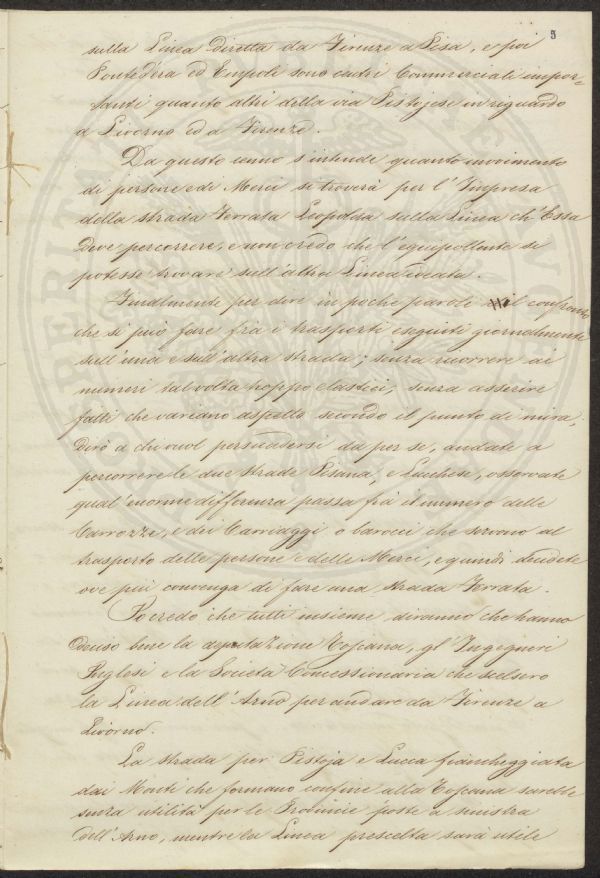 5
sulla Linea diretta da Firenze a Pisa, e poi
Pontedera ed Empoli sono centri Commerciali impor-
tanti quanto altri della via Pistojese in riguardo
a Livorno ed a Firenze.
Da questo unno s'intende quanto movimento
di persone e di Merci si troverà per l'Impresa
della strada Ferrata Leopolda sulla Linea ch'Essa
deve percorrere, e non credo che l'equipollente si
potesse trovare sull'altra Linea ideata.
Finalmente per dire in poche parole il confronto
che si può fare fra i trasporti eseguiti giornalmente
sull'una e sull'altra strada; senza ricorrere ai
numeri talvolta troppo elastici, senza asserire
fatti che variano aspetto secondo il punto di mira,
dirò a chi vuol persuadersi da per se, andate a
percorrere le due strade Pisana, e Lucchese, osservate
qual'enorme differenza passa fra il numero delle
Carrozze, e dei Carriaggi o barocci che servono al
trasporto delle persone e delle Merci, e quindi decidete
ove più convenga di fare una strada Ferrata.
Io credo che tutti insieme diranno che hanno
deciso bene la deputazione Toscana, gl'Ingegneri
Inglesi e la Società Concessionaria che scelsero
la Linea dell'Arno per andare da Firenze a
Livorno.
La strada per Pistoja e Lucca fiancheggiata
dai Monti che formano confine alla Toscana sarebbe
senza utilità per le Provincie poste a sinistra
dell'Arno, mentre la Linea prescelta sarà utile